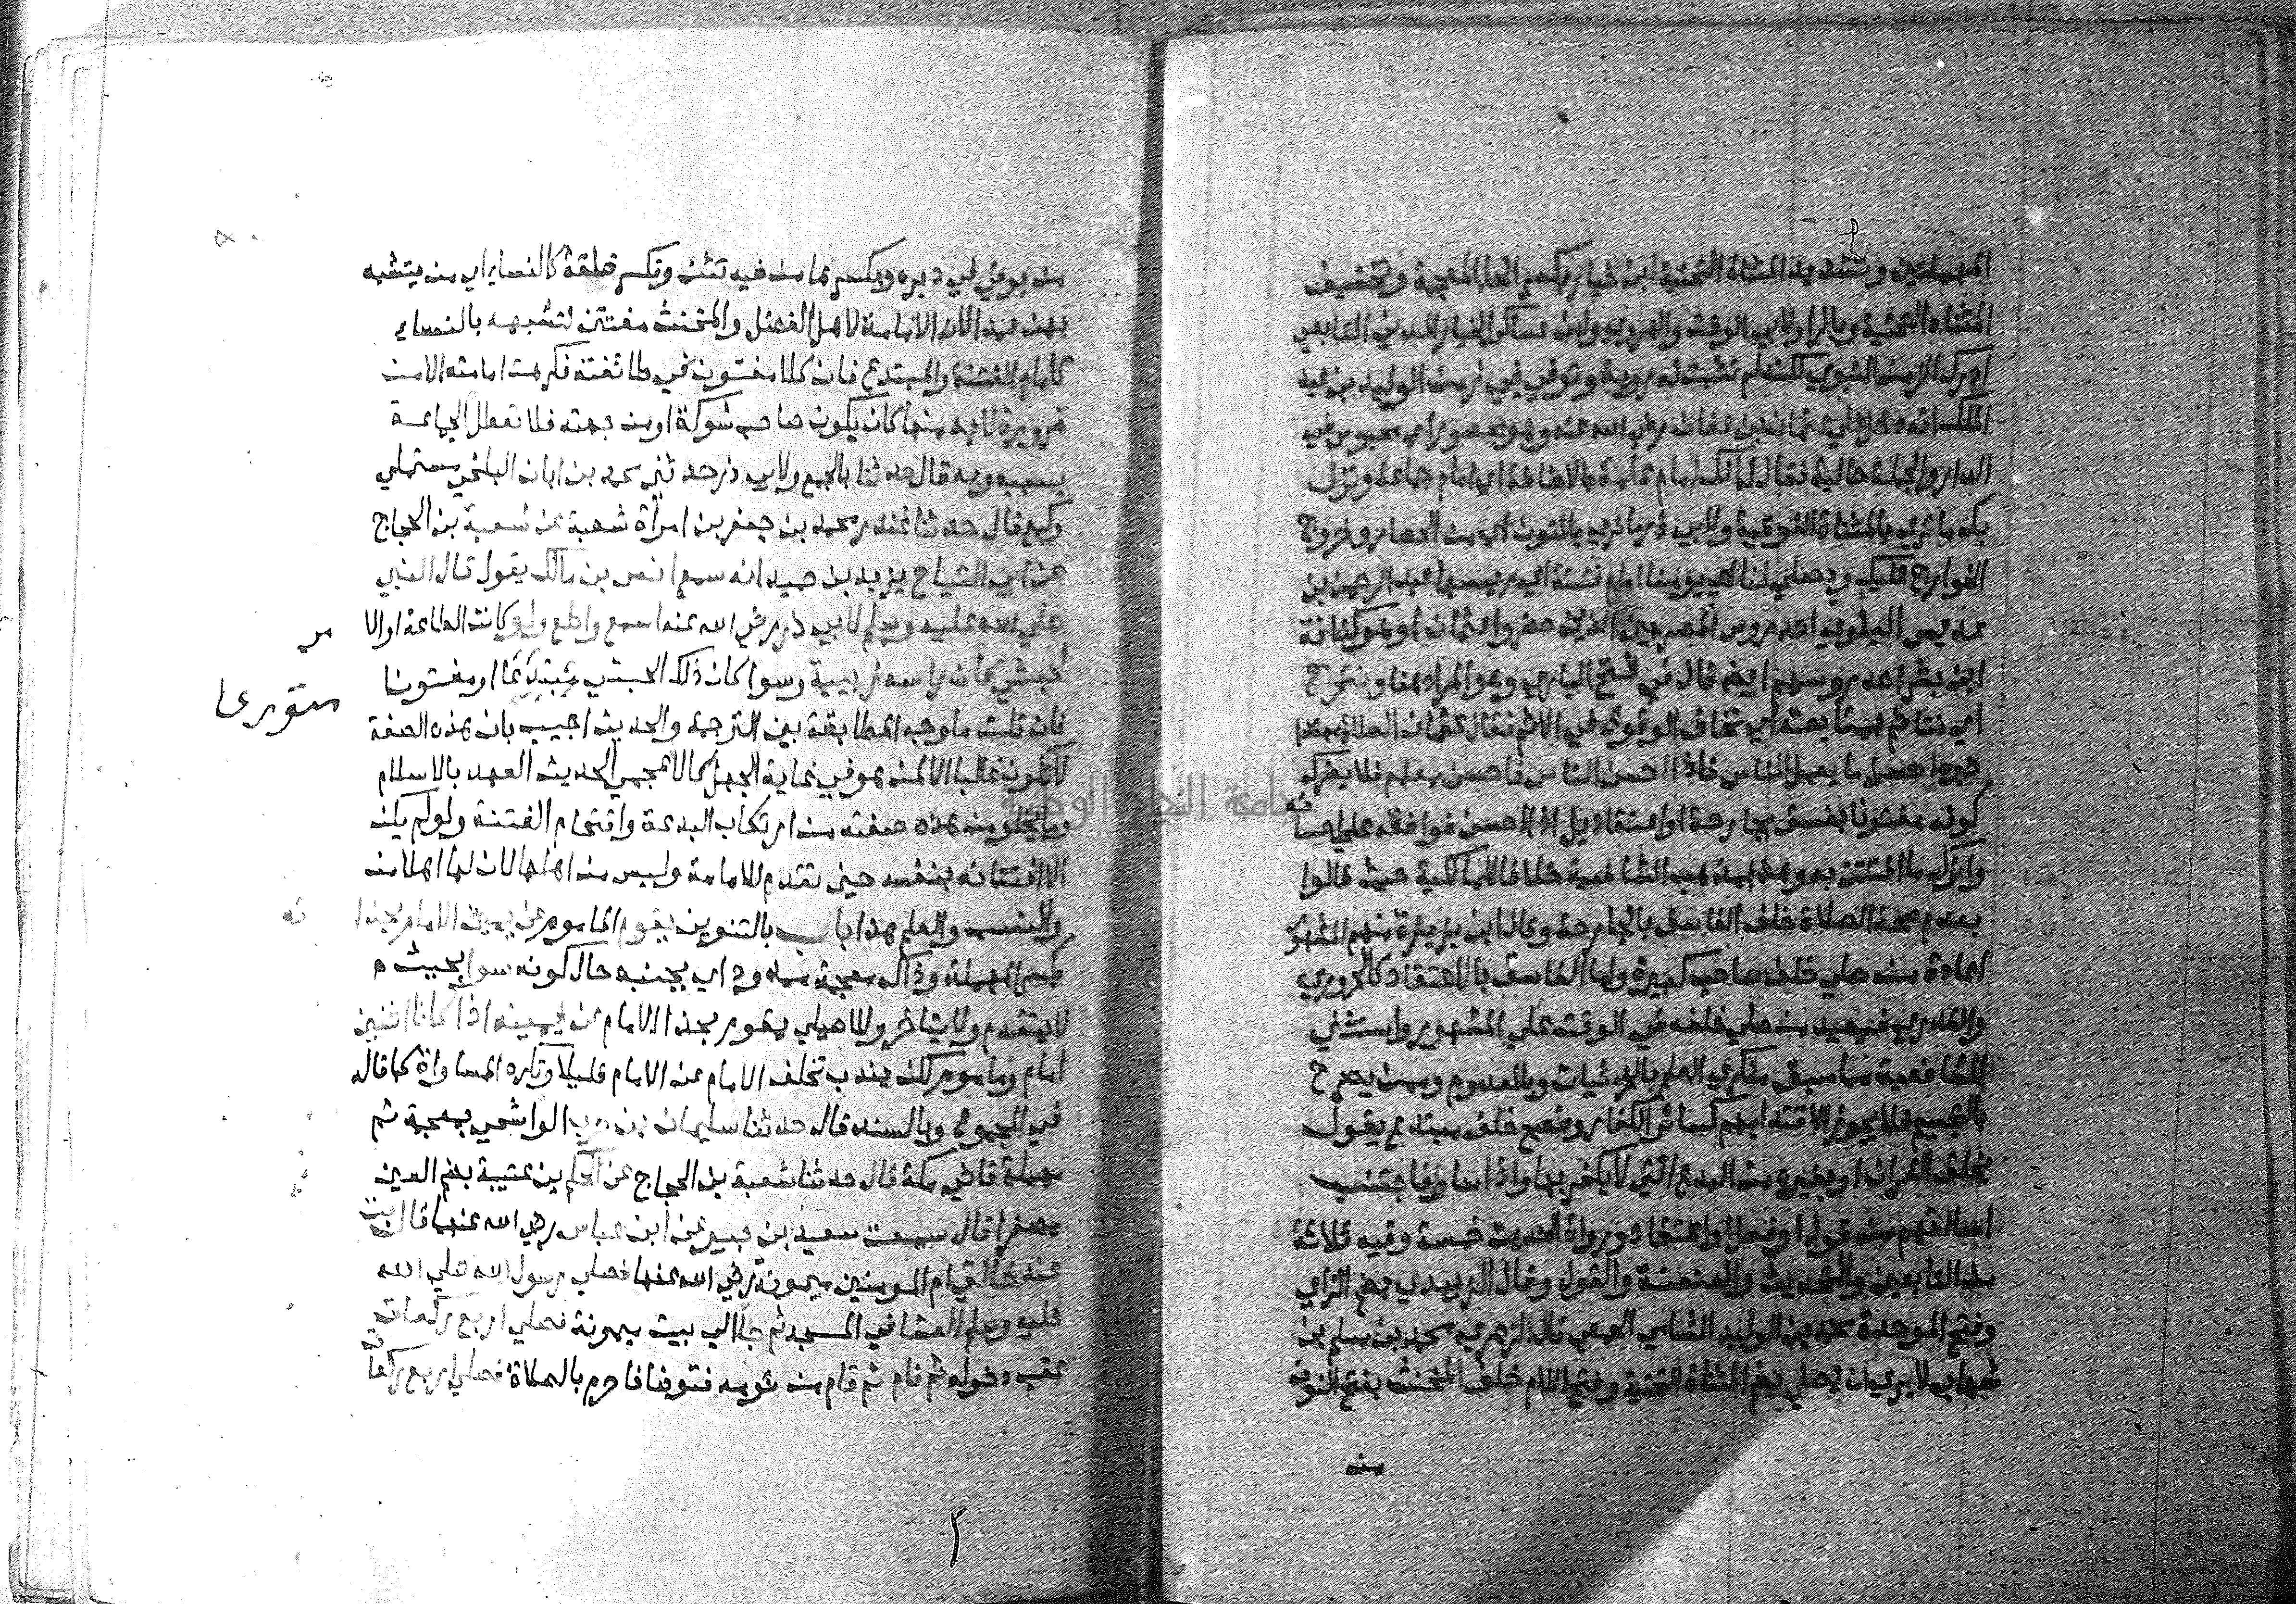 المهملتين وتشديد المثناة التحتية ابن خيار بكسر الخاء المعجمة وتخفيف
المثناه التحتية وبالراء ولابي الوقت والهروي وابن عساكر الخيار المدني التابعي
ادرك الزمن النبوي لكنه لم تثبت له روية وتوفي في زمن الوليد بن عبد
الملك انه دخل علي عثمان بن عفان رضي الله عنه وهو محصور اي محبوس في
الدار والجملة حالية فقال له انك امام عامة بالاضافة اي امام جماعة ونزل
بك ما تري بالمثناة الفوقية ولابي ذر ما نري بالنون اي من الحصار وخروج
الخوارج عليك ويصلي لنا اي يومنا امام فتنة اي رييسها عبد الرحمن بن
عديس البلوي احد روس المصريين الذين حصروا عثمان او هو كنانة
ابن بشر احد رووسهم ايضا قال في فتح الباري وهو المراد هنا ونتحرج
اي نتاثم بمتابعته اي نخاف الوقوع في الاثم فقال عثمان الصلاة
احسن ما يعمل الناس فاذا احسن الناس فاحسن معهم فلا يضرك
كونه مفتونا بفسق بجارحة او اعتقاد بل اذا احسن فوافقه علي احسانه
واترك ما افتتن به وهذا مذهب الشافعية خلافا للمالكية حيث قالوا
بعدم صحة الصلاة خلف الفاسق بالجارحة وقال ابن بزيزة منهم المشهور
اعادة من صلي خلف صاحب كبيرة واما الفاسق بالاعتقاد كالحروري
والقدري فيعيد من صلي خلفه في الوقت علي المشهور واستثني
الشافعية مما سبق منكري العلم بالجزئيات وبالمعدوم ومن يصرح
بالتجسيم فلا يجوز الاقتدا بهم كسائر الكفار وتصح خلف مبتدع يقول
بخلق القران او بغيره من البدع التي لا يكفر بها واذا اساوا فاجتنب
اساتهم من قول او فعل او اعتقاد ورواة الحديث خمسة وفيه ثلاثة
من التابعين والتحديث والعنعنة والقول وقال الزبيدي بضم الزاي
وفتح الموحدة محمد بن الوليد الشامي الحمصي قال الزهري محمد بن مسلم بن
شهاب لا نري ان يصلي بضم المثناة التحتية وفتح اللام خلف المخنث بفتح النون
من
من يوتي في دبره وبكسرها من فيه تثن وتكسر خلقة كالنساء اي من يتشبه
بهن عمدا لان الامامة لاهل الفضل والمخنث مفتتن لتشبهه بالنساء
كامام الفتنة والمبتدع فان كلا مفتون في طائفته فكرهت امامته الا من
ضرورة لا بد منها كان يكون صاحب شوكة او من جهته فلا تعطل الجماعة
بسببه وبه قال حدثنا بالجمع ولابي ذر حدثني محمد بن ابان البلخي مستملي
وكيع قال حدثنا غندر محمد بن جعفر بن امرأة شعبة عن شعبة بن الحجاج
عن ابي التياح يزيد بن حميد انه سمع انس بن مالك يقول قال النبي
صلي الله عليه وسلم لابي ذر رضي الله عنه اسمع واطع ولو كانت الطاعة او الا
لحبشي كان راسه زبيبة وسوا كان ذلك الحبشي مبتدعا او مفتونا
فان قلت ما وجه المطابقة بين الترجمة والحديث اجيب بان هذه الصفة
لا تكون غالبا الا لمن هو في غاية الجهل كالاعجمي الحديث العهد بالاسلام
وما يخلو من هذه صفته من ارتكاب البدعة واقتحام الفتنة ولو لم يكن
الا افتتانه بنفسه حين تقدم للامامة وليس من اهلها لان لها اهلا من
والنسب والعلم هذا باب بالتنوين يقوم الماموم عن يمين الامام بحذا
بكسر المهملة وذال معجمة ممدود اي بجنبه حال كونه سوا بحيث
لا يتقدم ولا يتاخر والاصيلي يقوم بحذا الامام عن يمينه اذا كانا اثنين
امام وماموم لكن يندب تخلف الامام عن الامام قليلا وتكره المساواة كما قاله
في المجموع وبالسند قال حدثنا سليمان بن حرب الواشحي بمعجمة ثم
مهملة قاضي مكة قال حدثنا شعبة بن الحجاج عن الحكم بن عتيبة بضم العين
مصغرا قال سمعت سعيد بن جبير عن ابن عباس رضي الله عنهما قال بت
عند خالتي ام المومنين ميمونة رضي الله عنها فصلي رسول الله صلي الله
عليه وسلم العشا في المسجد ثم جا الي بيت ميمونة فصلي اربع ركعات
عقب دخوله ثم نام ثم قام من نومه فتوضا فاحرم بالصلاة فصلي اربع ركعات
جامعة النجاح الوطنية